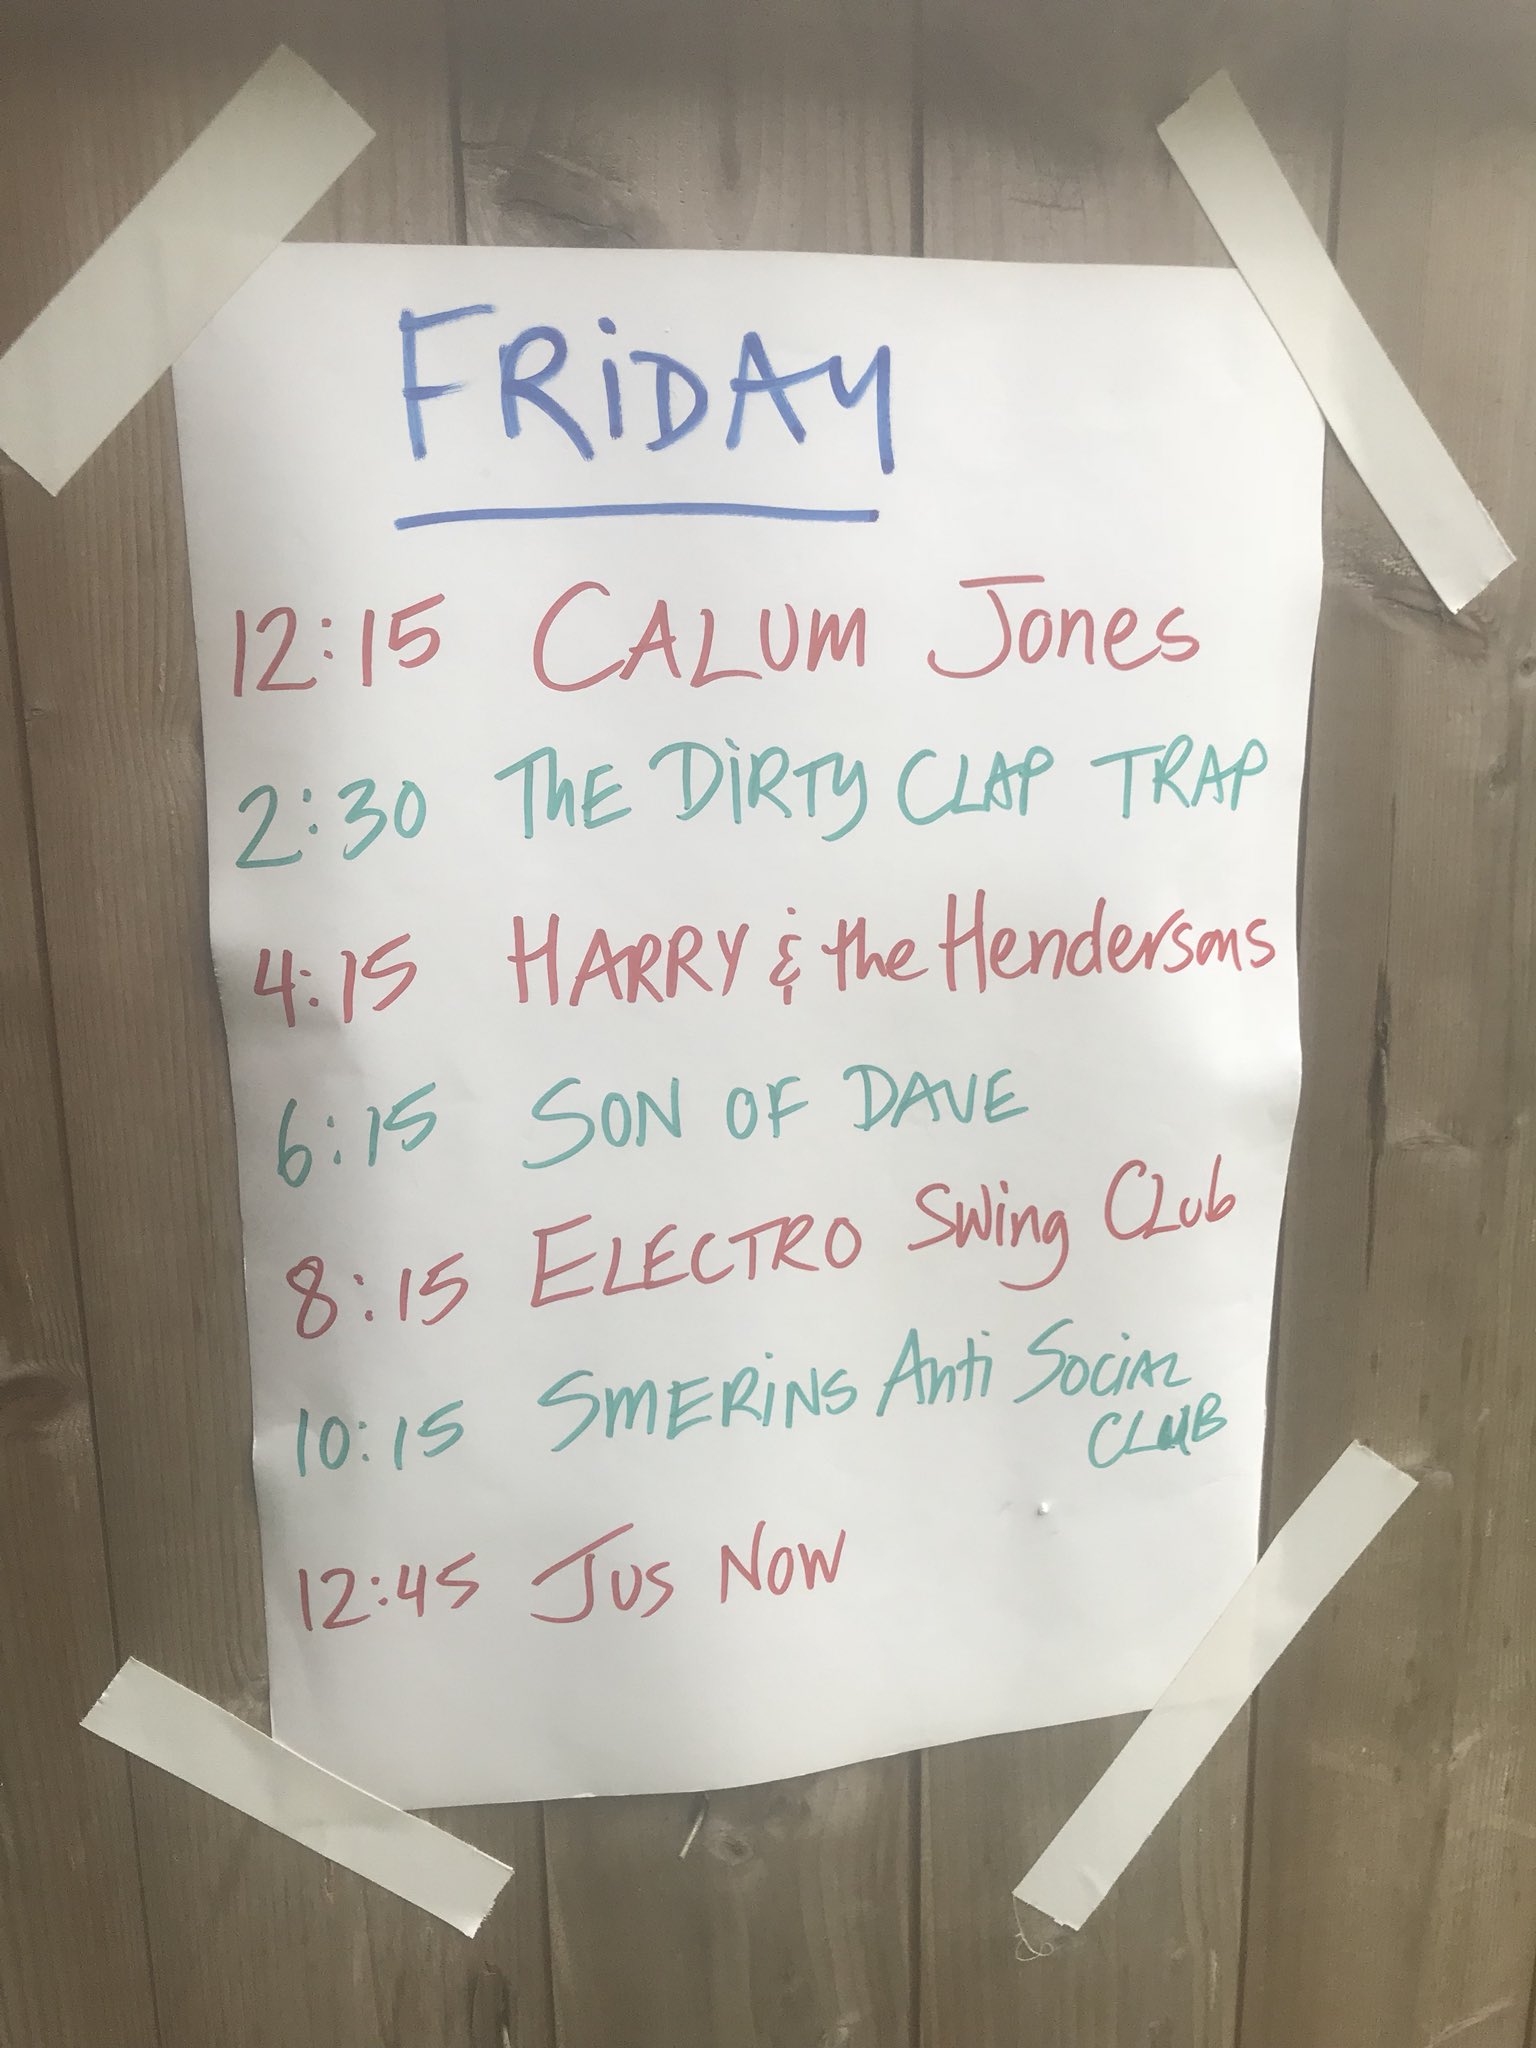 FRiDAY
12:15 CALUM Jones
2:30 ThE DiRTY CLAP TRAP
4:15 HARRY & the Hendersons
6:15 SON OF DAVE
8:15 ELECTRO Swing CLub
10:15 SMERiNS Anti SOCiAL
CLUB
12:45 JUS NOW